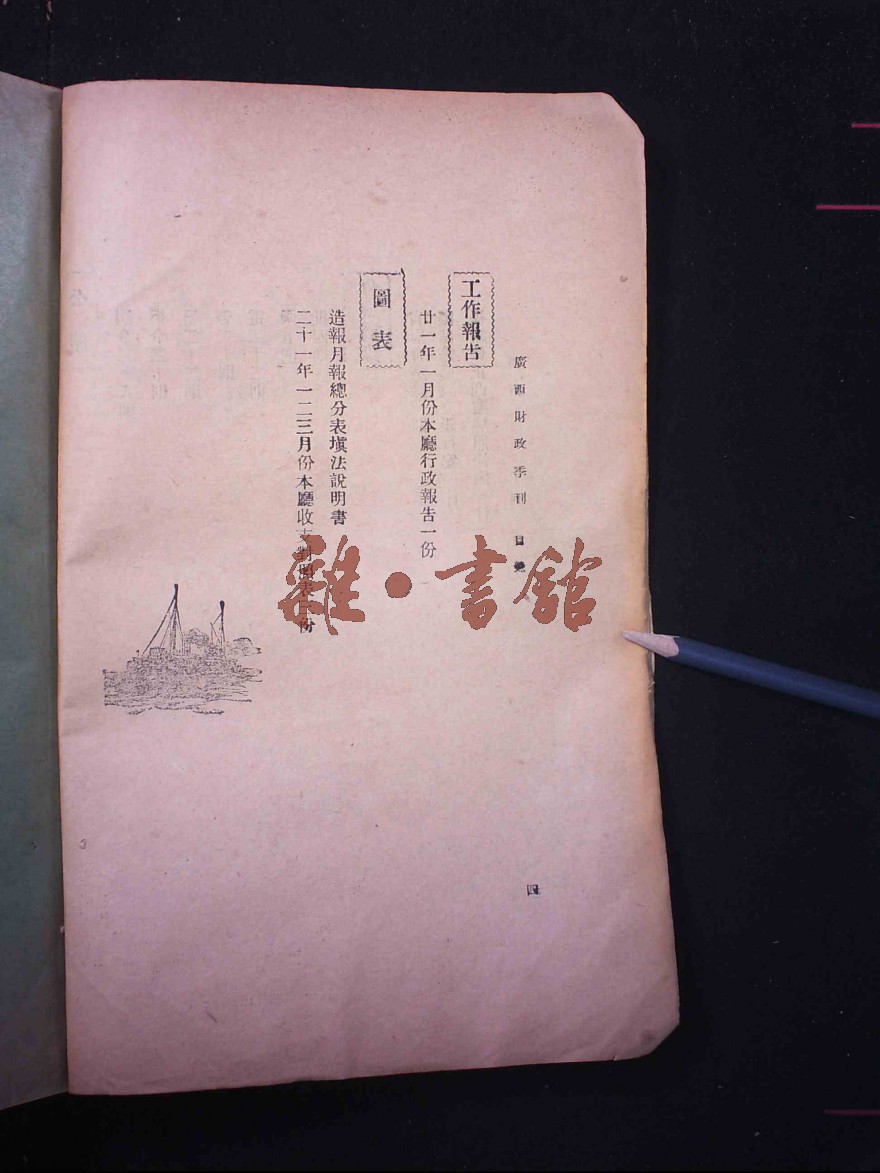 廣西財政季刊 目錄
工作報告
廿一年一月份本廳行政報告一份
圖表
造報月報總分表塡法說明書
二十一年一二三月份本廳收支對照表三份
四
雜·書館